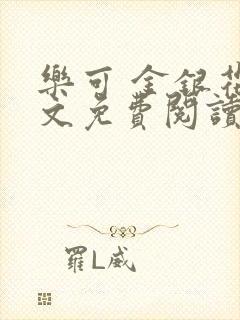 樂可 金銀花
文免費閱讀
羅L威